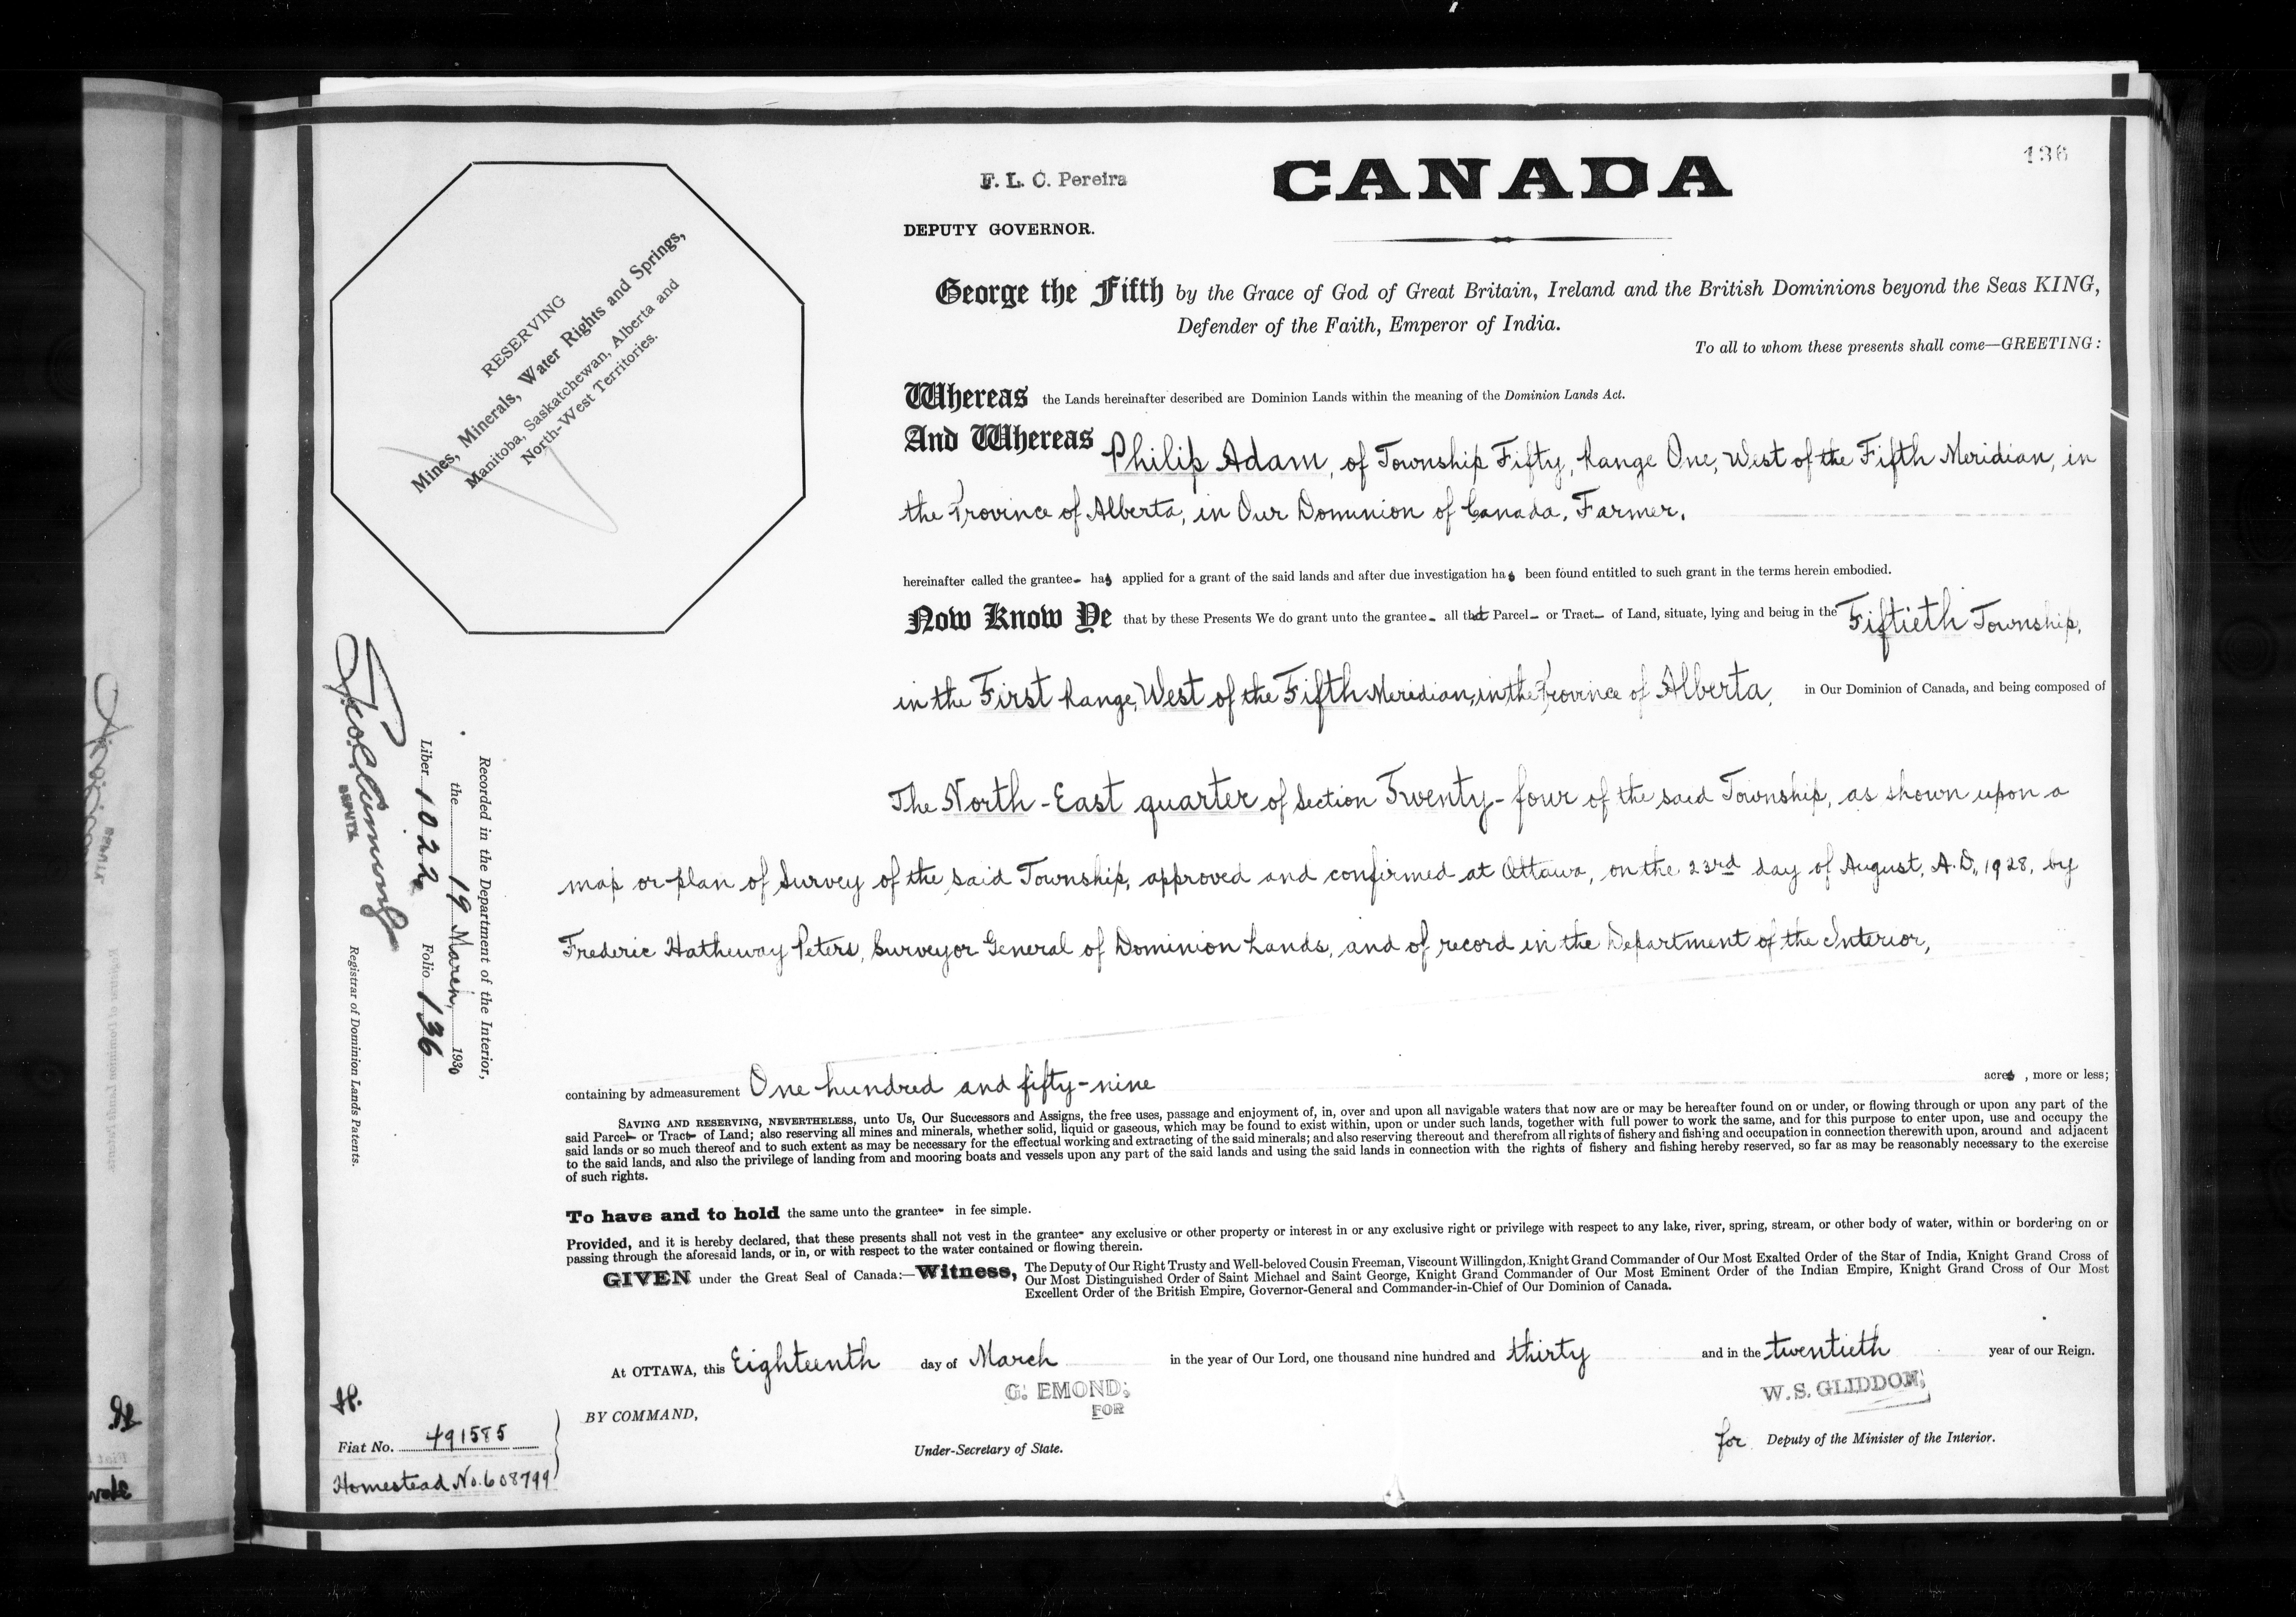 136
F. L. C. Pereira
CANADA
DEPUTY GOVERNOR.
RESERVING
Mines, Minerals, Water Rights and Springs,
Manitoba, Saskatchewan, Alberta and
North-West Territories.
George the Fifth by the Grace of God of Great Britain, Ireland and the British Dominions beyond the Seas KING,
Defender of the Faith, Emperor of India.
To all to whom these presents shall come—GREETING:
Whereas the Lands hereinafter described are Dominion Lands within the meaning of the Dominion Lands Act.
And Whereas Philip Adam, of Township Fifty, Range One, West of the Fifth Meridian, in
the Province of Alberta, in Our Dominion of Canada, Farmer.
hereinafter called the grantee- has applied for a grant of the said lands and after due investigation has been found entitled to such grant in the terms herein embodied.
Now Know Ye that by these Presents We do grant unto the grantee- all that Parcel- or Tract- of Land, situate, lying and being in the Fiftieth Township,
in the First Range, West of the Fifth Meridian, in the Province of Alberta, in Our Dominion of Canada, and being composed of
The North-East quarter of Section Twenty-four of the said Township, as shown upon a
map or plan of Survey of the said Township, approved and confirmed at Ottawa, on the 23rd day of August, A.D., 1928, by
Frederic Hatheway Peters, Surveyor General of Dominion Lands, and of record in the Department of the Interior,
containing by admeasurement One hundred and fifty-nine acres, more or less;
SAVING AND RESERVING, NEVERTHELESS, unto Us, Our Successors and Assigns, the free uses, passage and enjoyment of, in, over and upon all navigable waters that now are or may be hereafter found on or under, or flowing through or upon any part of the
said Parcel- or Tract- of Land; also reserving all mines and minerals, whether solid, liquid or gaseous, which may be found to exist within, upon or under such lands, together with full power to work the same, and for this purpose to enter upon, use and occupy the
said lands or so much thereof and to such extent as may be necessary for the effectual working and extracting of the said minerals; and also reserving thereout and therefrom all rights of fishery and fishing and occupation in connection therewith upon, around and adjacent
to the said lands, and also the privilege of landing from and mooring boats and vessels upon any part of the said lands and using the said lands in connection with the rights of fishery and fishing hereby reserved, so far as may be reasonably necessary to the exercise
of such rights.
To have and to hold the same unto the grantee- in fee simple.
Provided, and it is hereby declared, that these presents shall not vest in the grantee- any exclusive or other property or interest in or any exclusive right or privilege with respect to any lake, river, spring, stream, or other body of water, within or bordering on or
passing through the aforesaid lands, or in, or with respect to the water contained or flowing therein.
GIVEN under the Great Seal of Canada:—Witness, The Deputy of Our Right Trusty and Well-beloved Cousin Freeman, Viscount Willingdon, Knight Grand Commander of Our Most Exalted Order of the Star of India, Knight Grand Cross of
Our Most Distinguished Order of Saint Michael and Saint George, Knight Grand Commander of Our Most Eminent Order of the Indian Empire, Knight Grand Cross of Our Most
Excellent Order of the British Empire, Governor-General and Commander-in-Chief of Our Dominion of Canada.
At OTTAWA, this Eighteenth day of March in the year of Our Lord, one thousand nine hundred and thirty and in the twentieth year of our Reign.
G. EMOND,
FOR
W. S. GLIDDON,
BY COMMAND,
Under-Secretary of State.
for Deputy of the Minister of the Interior.
H.
Fiat No. 491585
Homestead No. 608799
Recorded in the Department of the Interior,
the 19 March, 1930
Liber 1022 Folio 136
DEPUTY
Registrar of Dominion Lands Patents.